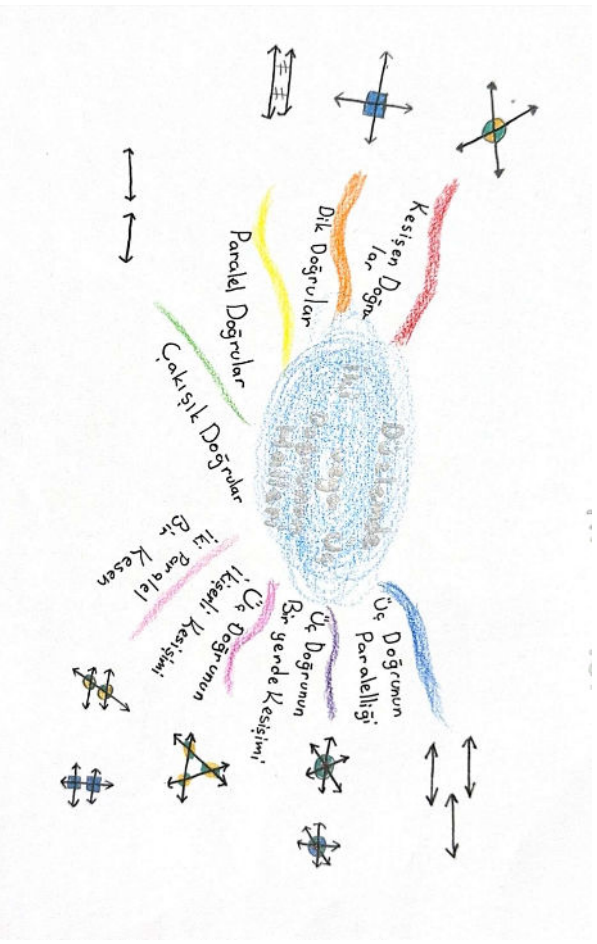 Düzlemde
İki veya Üç
Doğrunun
Halleri
Kesişen Doğru
lar
Dik Doğrular
Paralel Doğrular
Çakışık Doğrular
İki Paralel
Bir Kesen
Üç Doğrunun
ikişerli Kesişimi
Üç Doğrunun
Bir yerde Kesişimi
Üç Doğrunun
Paralelliği